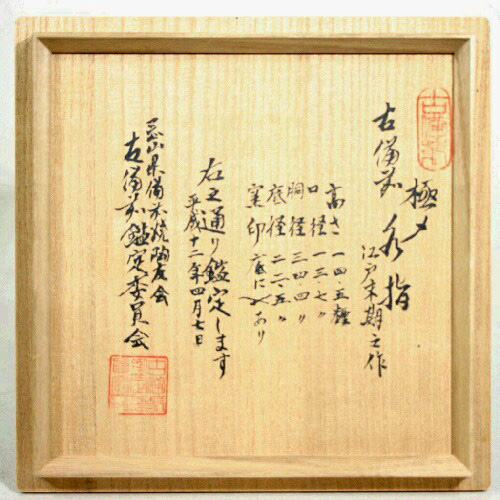 極メ
古備前 水指
江戸末期之作
高さ 一四・五糎
口径 一三・七〃
胴径
底径 二二・五〃
窯印 底に あり
右之通り鑑定します
平成十二年四月七日
岡山県備前焼陶友会
古備前鑑定委員会